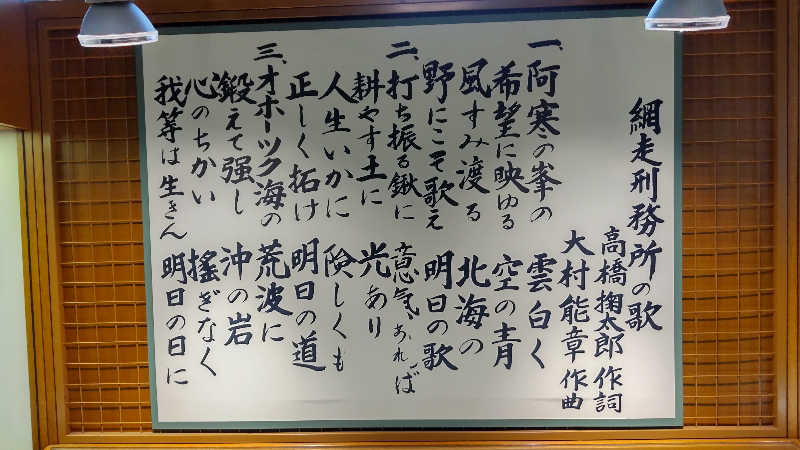 網走刑務所の歌
高橋掬太郎 作詞
大村能章 作曲
一、阿寒の峯の 雲白く
希望に映ゆる 空の青
風すみ渡る 北海の
野にこそ歌え 明日の歌
二、打ち振る鍬に 意気あれば
耕やす土に 光あり
人生いかに 険しくも
正しく拓け 明日の道
三、オホーツク海の 荒波に
鍛えて强し 沖の岩
心のちかい 搖ぎなく
我等は生きん 明日の日に